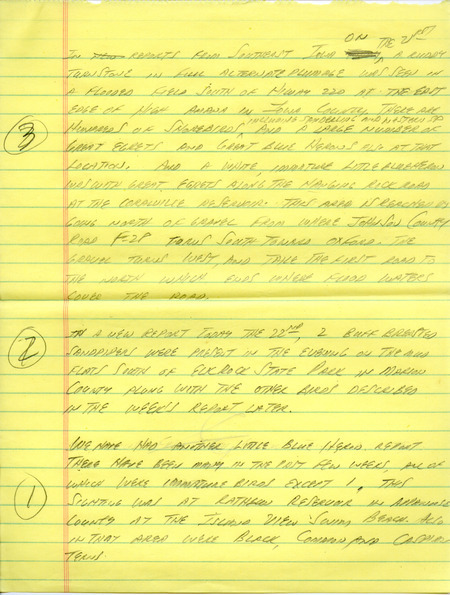 ON THE 21ST
IN REPORTS FROM SOUTHEAST IOWA, A RUDDY
TURNSTONE IN FULL ALTERNATE PLUMAGE WAS SEEN IN
A FLOODED FIELD SOUTH OF HIWAY 220 AT THE EAST
EDGE OF HIGH AMANA IN IOWA COUNTY. THERE ARE
INCLUDING SANDERLING AND WESTERN SP
3 HUNDREDS OF SHOREBIRDS, AND A LARGE NUMBER OF
GREAT EGRETS AND GREAT BLUE HERONS ALSO AT THAT
LOCATION. AND A WHITE, IMMATURE LITTLE BLUE HERON
WAS WITH GREAT EGRETS ALONG THE HANGING ROCK ROAD
AT THE CORALVILLE RESERVOIR. THIS AREA IS REACHED BY
GOING NORTH OF GRAVEL FROM WHERE JOHNSON COUNTY
ROAD F-28 TURNS SOUTH TOWARD OXFORD. THE
GRAVEL TURNS WEST, AND TAKE THE FIRST ROAD TO
THE NORTH WHICH ENDS WHERE FLOOD WATERS
COVER THE ROAD.
IN A NEW REPORT TODAY THE 22ND, 2 BUFF BREASTED
2 SANDPIPERS WERE PRESENT IN THE EVENING ON THE MUD
FLATS SOUTH OF ELK ROCK STATE PARK IN MARION
COUNTY ALONG WITH THE OTHER BIRDS DESCRIBED
IN THE WEEK'S REPORT LATER.
WE HAVE HAD ANOTHER LITTLE BLUE HERON REPORT
THERE HAVE BEEN MANY IN THE PAST FEW WEEKS, ALL OF
1 WHICH WERE IMMATURE BIRDS EXCEPT 1. THIS
SIGHTING WAS AT RATHBUN RESERVOIR IN APPANOOSE
COUNTY AT THE ISLAND VIEW SOUTH BEACH. ALSO
IN THAT AREA WERE BLACK, COMMON, AND CASPIAN
TERNS.